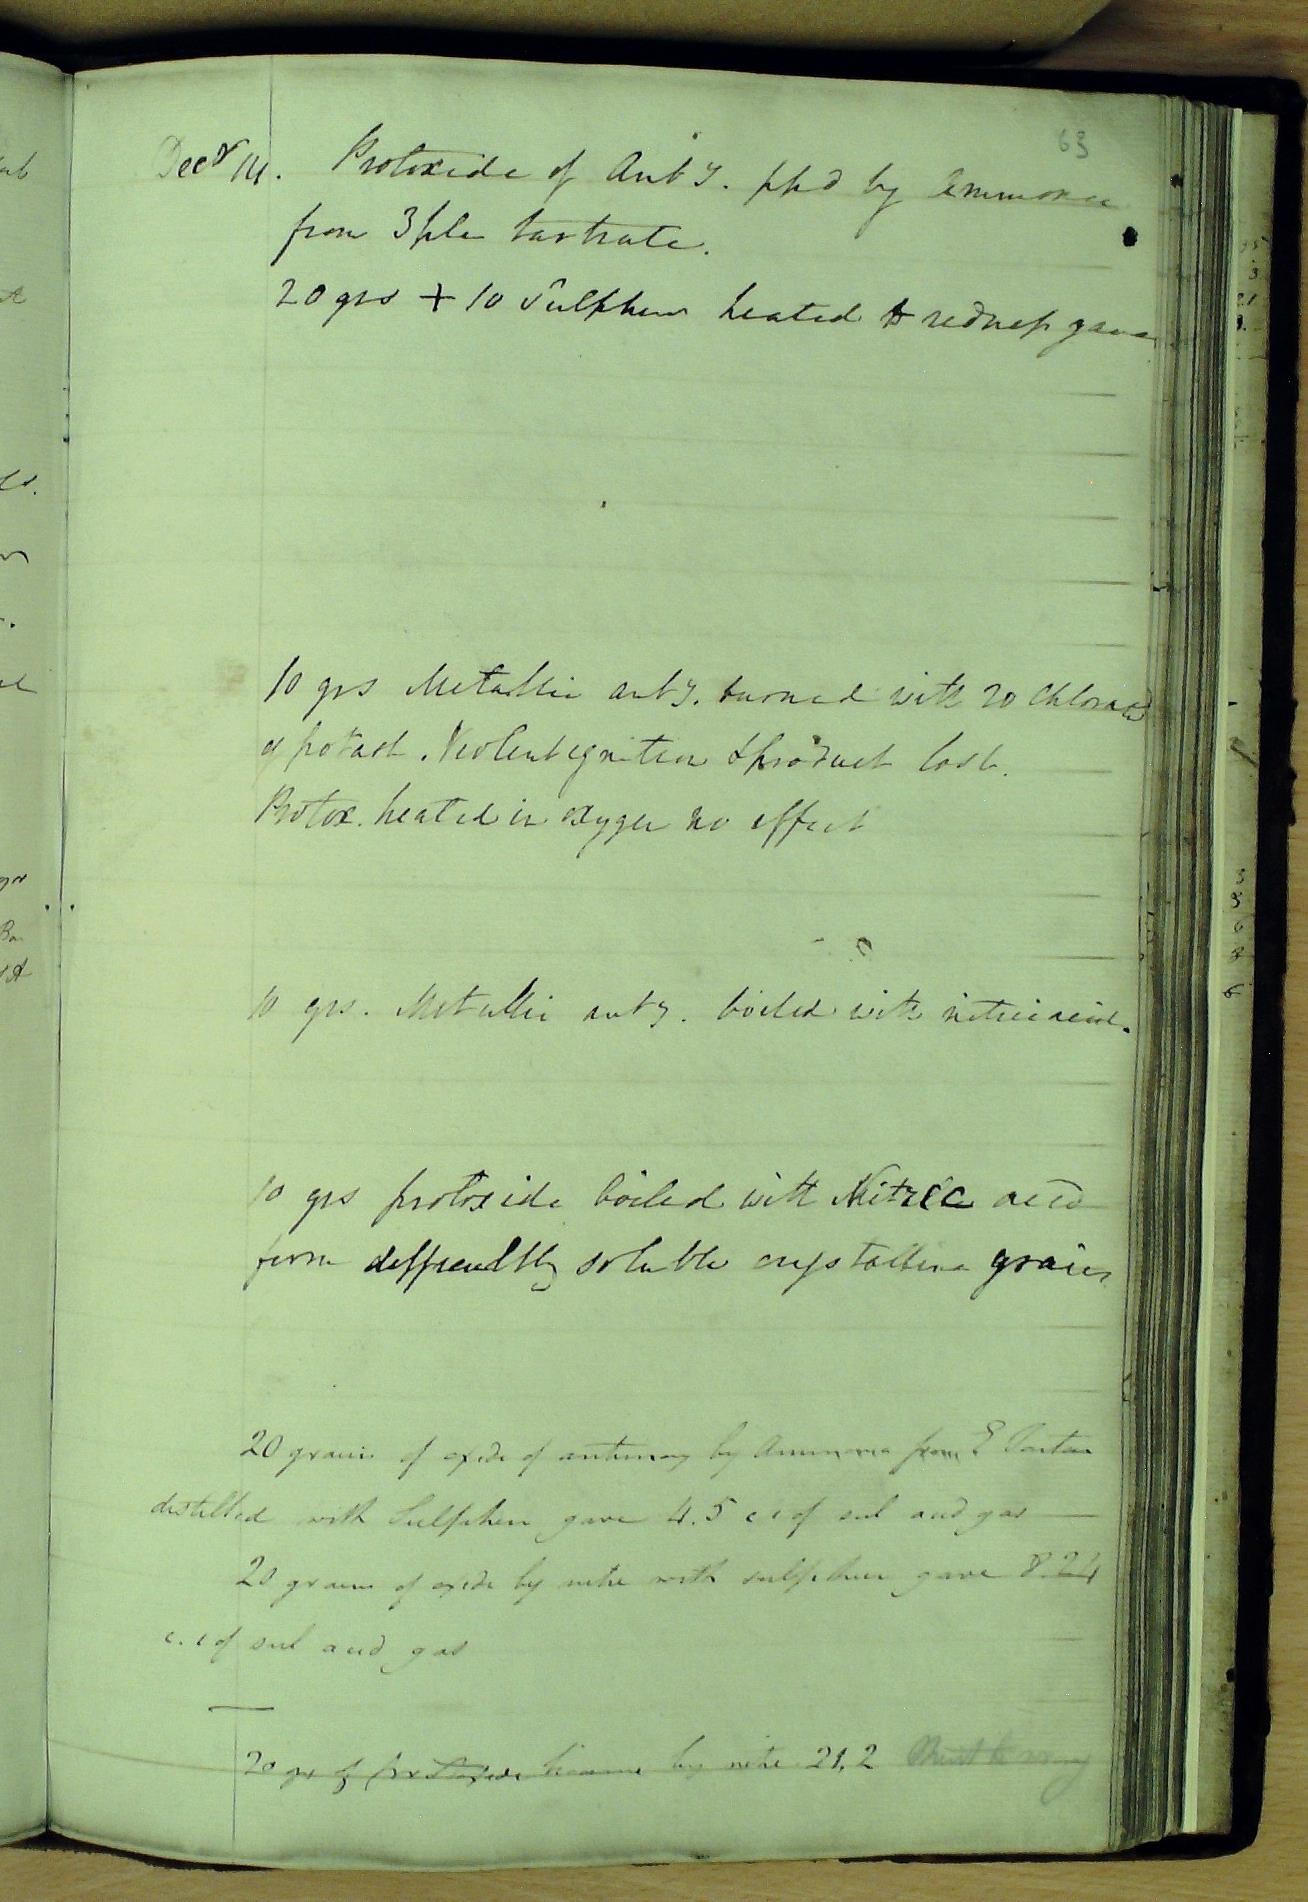 63
Decr 14. Protoxide of Anty. ppd by Ammonia
from 3ple tartrate.
20 grs + 10 Sulphur heated to redness gave
10 grs Metallic anty. burned with 20 Chlorate
of potash. Violent ignition & product lost.
Protox. heated in oxygen no effect
10 grs. Metallic anty. boiled with nitric acid.
10 grs protoxide boiled with Nitric acid
form difficultly soluble crystalline grains
20 grains of oxide of antimony by Ammonia from E Tartar
distilled with Sulphur gave 4.5 c i of sul and gas
20 grains of oxide by nitre with sulphur gave 8.24
c. i of sul and gas
20 gr of protoxide became by nitre 21.2 Must be wrong